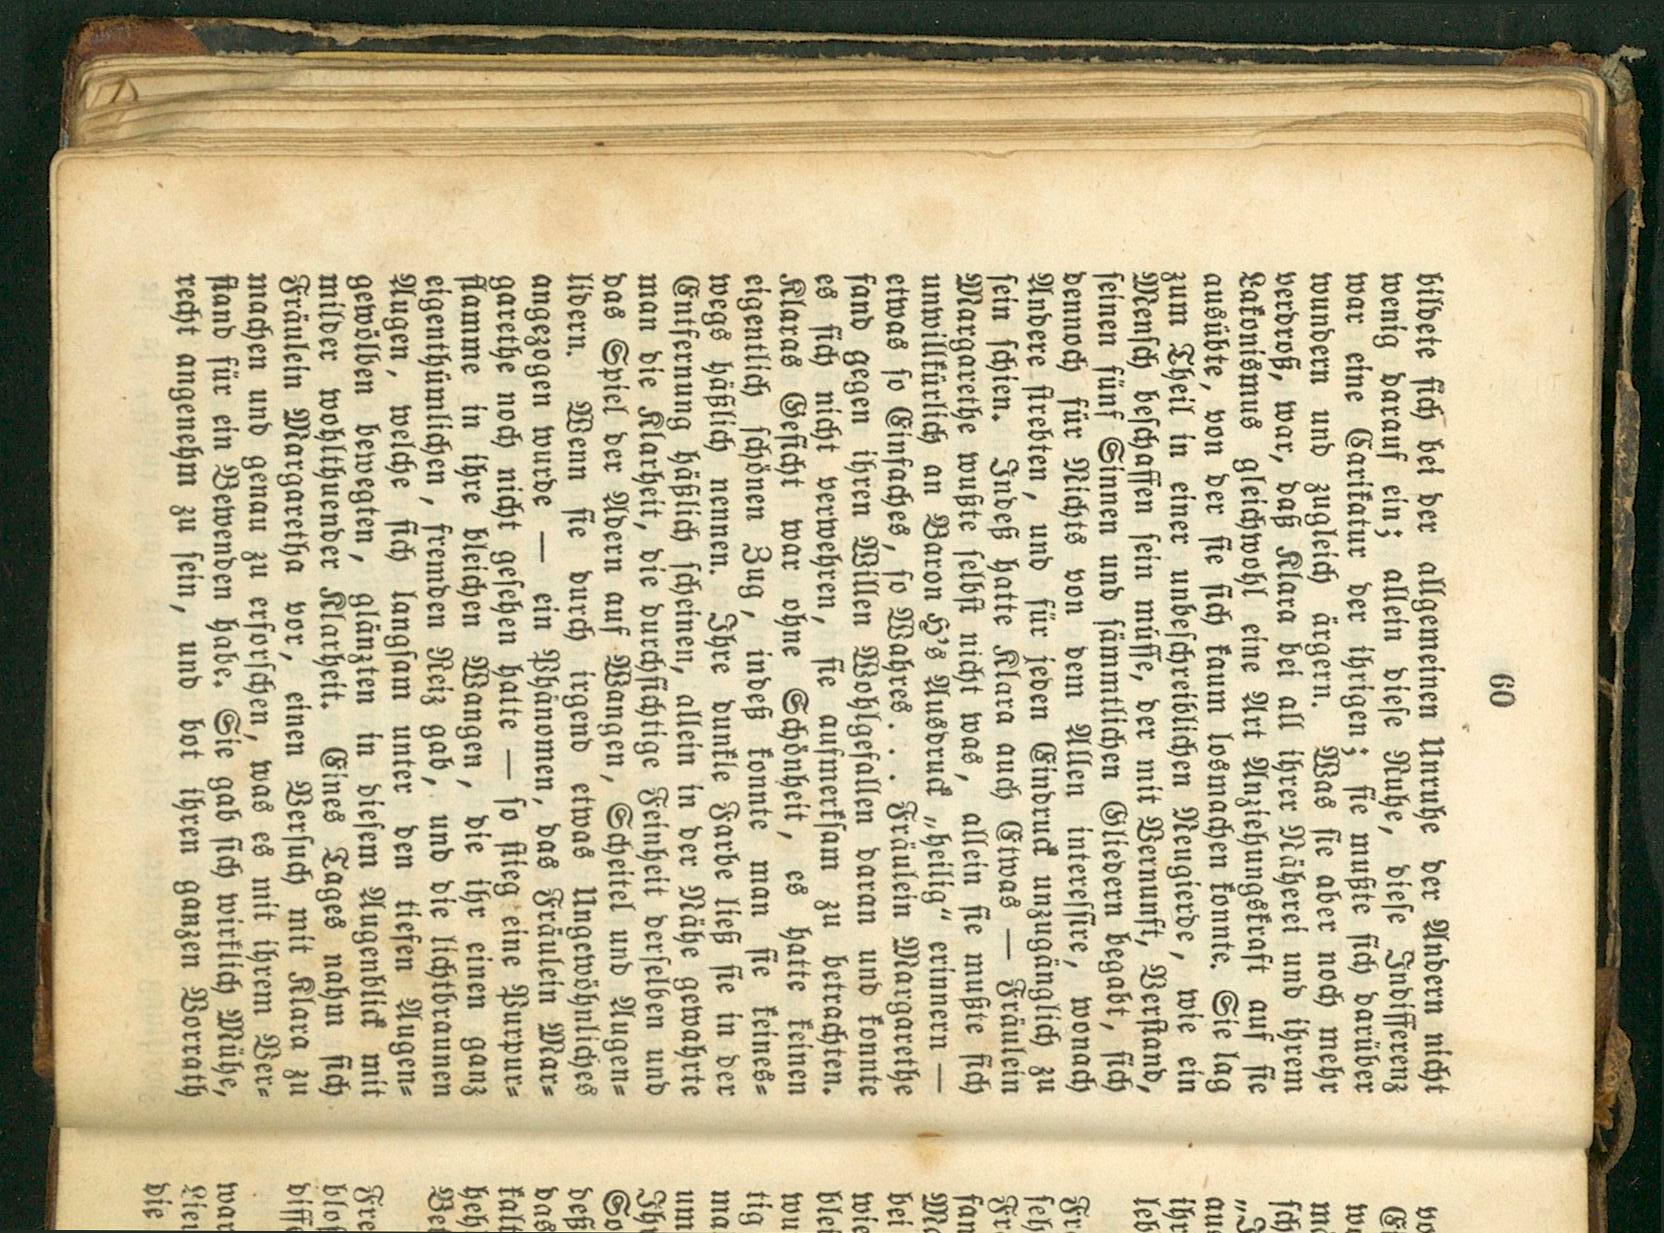 60
bildete sich bei der allgemeinen Unruhe der Andern nicht
wenig darauf ein; allein diese Ruhe, diese Indifferenz
war eine Carikatur der ihrigen; sie mußte sich darüber
wundern und zugleich ärgern. Was sie aber noch mehr
verdroß, war, daß Klara bei all ihrer Näherei und ihrem
Lakonismus gleichwohl eine Art Anziehungskraft auf sie
ausübte, von der sie sich kaum losmachen konnte. Sie lag
zum Theil in einer unbeschreiblichen Neugierde, wie ein
Mensch beschaffen sein müsse, der mit Vernunft, Verstand,
seinen fünf Sinnen und sämmtlichen Gliedern begabt, sich
dennoch für Nichts von dem Allen interessire, wonach
Andere strebten, und für jeden Eindruck unzugänglich zu
sein schien. Indeß hatte Klara auch Etwas — Fräulein
Margarethe wußte selbst nicht was, allein sie mußte sich
unwillkürlich an Baron H's Ausdruck „heilig“ erinnern —
etwas so Einfaches, so Wahres. . . . Fräulein Margarethe
fand gegen ihren Willen Wohlgefallen daran und konnte
es sich nicht verwehren, sie aufmerksam zu betrachten.
Klaras Gesicht war ohne Schönheit, es hatte keinen
eigentlich schönen Zug, indeß konnte man sie keines=
wegs häßlich nennen. Ihre dunkle Farbe ließ sie in der
Entfernung häßlich scheinen, allein in der Nähe gewahrte
man die Klarheit, die durchsichtige Feinheit derselben und
das Spiel der Adern auf Wangen, Scheitel und Augen=
lidern. Wenn sie durch irgend etwas Ungewöhnliches
angezogen wurde — ein Phänomen, das Fräulein Mar=
garethe noch nicht gesehen hatte — so stieg eine Purpur=
flamme in ihre bleichen Wangen, die ihr einen ganz
eigenthümlichen, fremden Reiz gab, und die lichtbraunen
Augen, welche sich langsam unter den tiefen Augen=
gewölben bewegten, glänzten in diesem Augenblick mit
milder wohlthuender Klarheit. Eines Tages nahm sich
Fräulein Margaretha vor, einen Versuch mit Klara zu
machen und genau zu erforschen, was es mit ihrem Ver=
stand für ein Bewenden habe. Sie gab sich wirklich Mühe,
recht angenehm zu sein, und bot ihren ganzen Vorrath